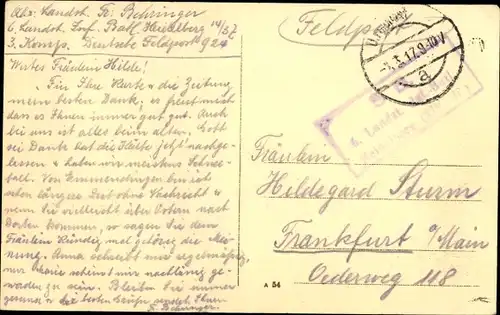 Abs: Landst. Fr. Behringer
6. Landst. Inf. Batl. Heidelberg 14/27
3. Komp. Deutsche Feldpost 924
Wertes Fräulein Hilde!
Für Ihre Karte & die Zeitung
meinen besten Dank; es freut mich
dass es Ihnen immer gut geht. Auch
bei uns ist alles beim alten. Gott
sei Dank hat die Kälte jetzt nachge-
lassen & haben wir meistens Schnee-
fall. Von Emmendingen bin ich
schon längere Zeit ohne Nachricht &
wenn Sie vielleicht über Ostern nach
Dorten kommen, so sagen Sie dem
Fräulein mal gehörig die Mei-
nung. Anna schreibt mir regelmässig,
nur scheint mir nachlässig ge-
worden zu sein. Bleiben Sie immer
gesund & die besten Grüsse sendet Ihnen
F. Behringer
Feldpost
17.9-10V
a
6. Landst.
Fräulein
Hildegard Sturm
Frankfurt a/Main
Oederweg 118
A 54